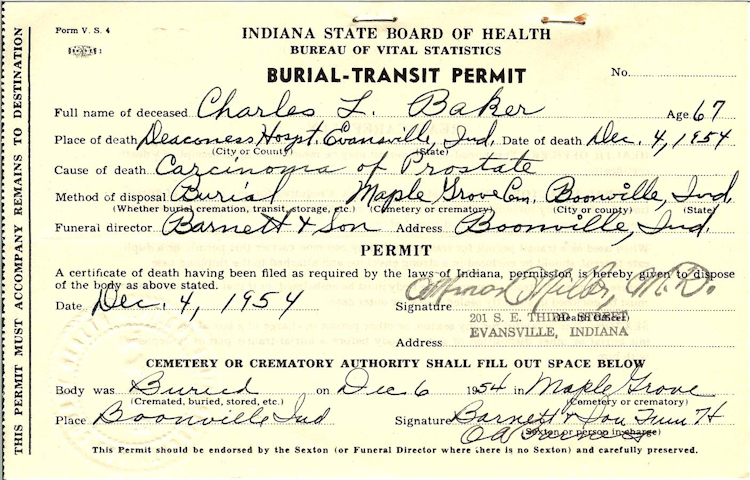 Form V. S. 4
INDIANA STATE BOARD OF HEALTH
BUREAU OF VITAL STATISTICS
BURIAL-TRANSIT PERMIT
No.
Full name of deceased Charles L. Baker Age 67
Place of death Deaconess Hospt. Evansville, Ind. Date of death Dec. 4, 1954
(City or County) (State)
Cause of death Carcinoma of Prostate
Method of disposal Burial Maple Grove Cem. Boonville, Ind
(Whether burial, cremation, transit, storage, etc.) (Cemetery or crematory) (City or county) (State)
Funeral director Barnett & Son Address Boonville, Ind.
PERMIT
A certificate of death having been filed as required by the laws of Indiana, permission is hereby given to dispose
of the body as above stated.
Date Dec. 4, 1954 Signature Miller, M.D.
(Health Officer)
201 S. E. THIRD STREET
Address EVANSVILLE, INDIANA
CEMETERY OR CREMATORY AUTHORITY SHALL FILL OUT SPACE BELOW
Body was Buried on Dec 6 1954 in Maple Grove
(Cremated, buried, stored, etc.) (Cemetery or crematory)
Place Boonville Ind Signature Barnett & Son Fun H
(Sexton or person in charge)
This Permit should be endorsed by the Sexton (or Funeral Director where there is no Sexton) and carefully preserved.
THIS PERMIT MUST ACCOMPANY REMAINS TO DESTINATION